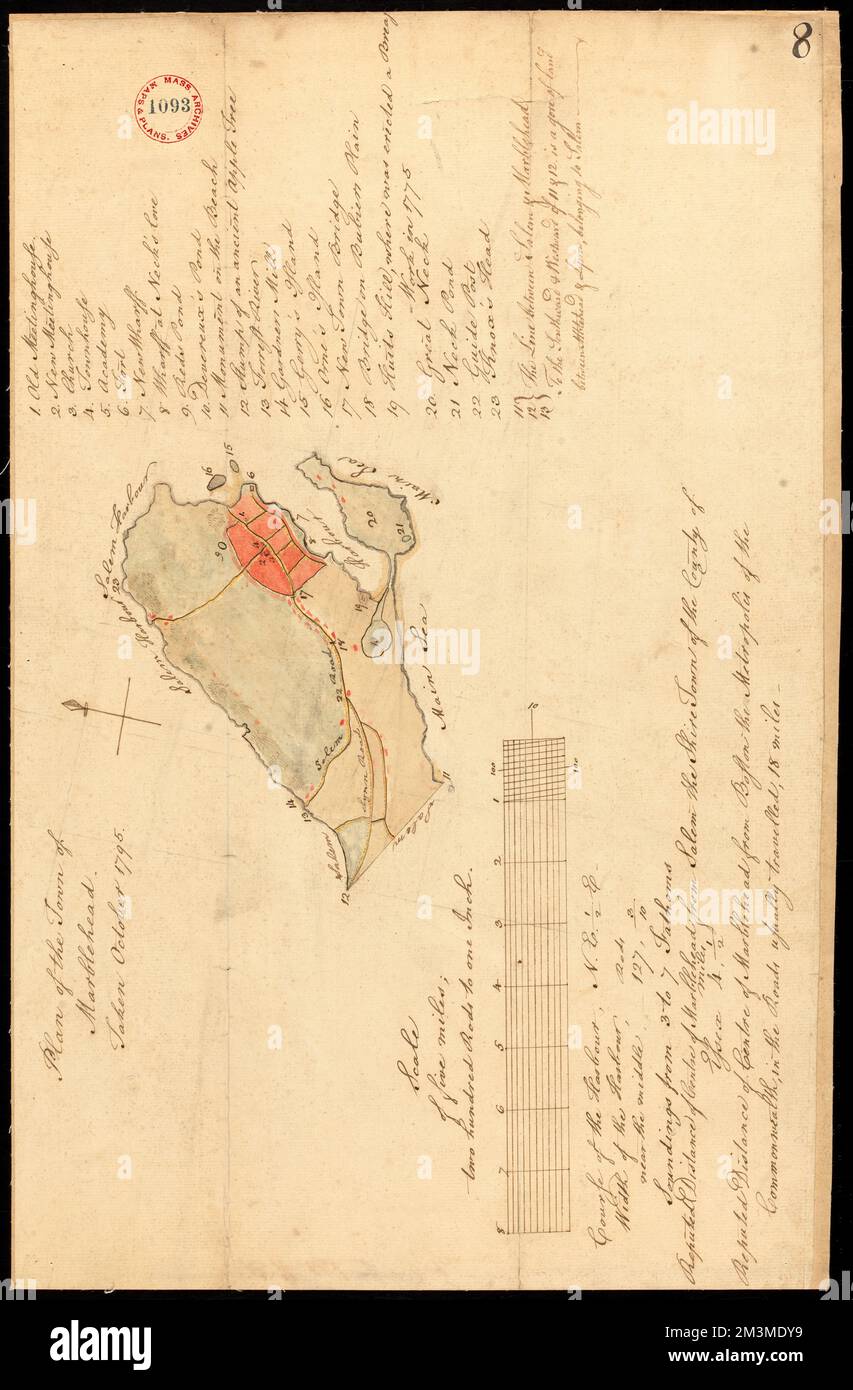 8
MASS. ARCHIVES
1093
MAPS & PLANS.
Plan of the Town of
Marblehead.
Taken October 1795.
1. Old Meetinghouse
2 New Meetinghouse
3. Church
4. Townhouse
5. Academy
6. Fort
7. New Wharff
8 Wharff at Neck's Cove
9. Reds Pond
10. Devereux's Pond
11 Monument on the Beach
12 Stump of an ancient Apple Tree
13 Forest River
14 Gardners Mill
15 Gerry's Island
16 Orne's Island
17 New Town Bridge
18 Bridge on Bubien Plain
19 Huits Hill, where was erected a Breast
Work in 1775
20 Great Neck
21 Neck Pond
22 Guide Post
23 Knox's Head
11}
12} The Line between Salem & Marblehead
13}
To the Southward & Westward of 11 & 12 is a gore of land
between Mblehead & Lynn, belonging to Salem
Salem Harbour
Salem Harbour
23
16
15
6
9
1
Main Sea
20
21
Harbour
8
7
19
17
18
Main Sea
22
Salem Road
Lynn Road
14
13
Salem
12
11
Scale
Of five miles;
two hundred Rods to one Inch.
8 7 6 5 4 3 2 1
100
10
100
Course of the Harbour, N.E. 1/2 E
Width of the Harbour Rods
near the middle 127, 3/10
Soundings from 3 to 7 Fathoms
Reputed Distance of Centre of Marblehead from Salem the Shire Town of the County of
Essex 4, 1/2 miles
Reputed Distance of Centre of Marblehead from Boston the Metropolis of the
Commonwealth, in the Roads usually travelled, 18 miles
alamy
Image ID: 2M3MDY9
www.alamy.com